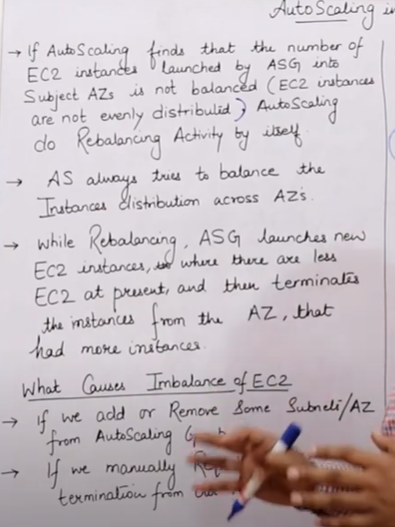 AutoScaling in
→ If AutoScaling finds that the number of
EC2 instances launched by ASG into
Subject AZs is not balanced (EC2 instances
are not evenly distributed) AutoScaling
do Rebalancing Activity by itself.
→ AS always tries to balance the
Instances distribution across AZs.
→ While Rebalancing, ASG launches new
EC2 instances, where there are less
EC2 at present, and then terminates
the instances from the AZ, that
had more instances.
What Causes Imbalance of EC2
→ If we add or Remove Some Subnets/AZ
from AutoScaling G
→ If we manually Req
termination from